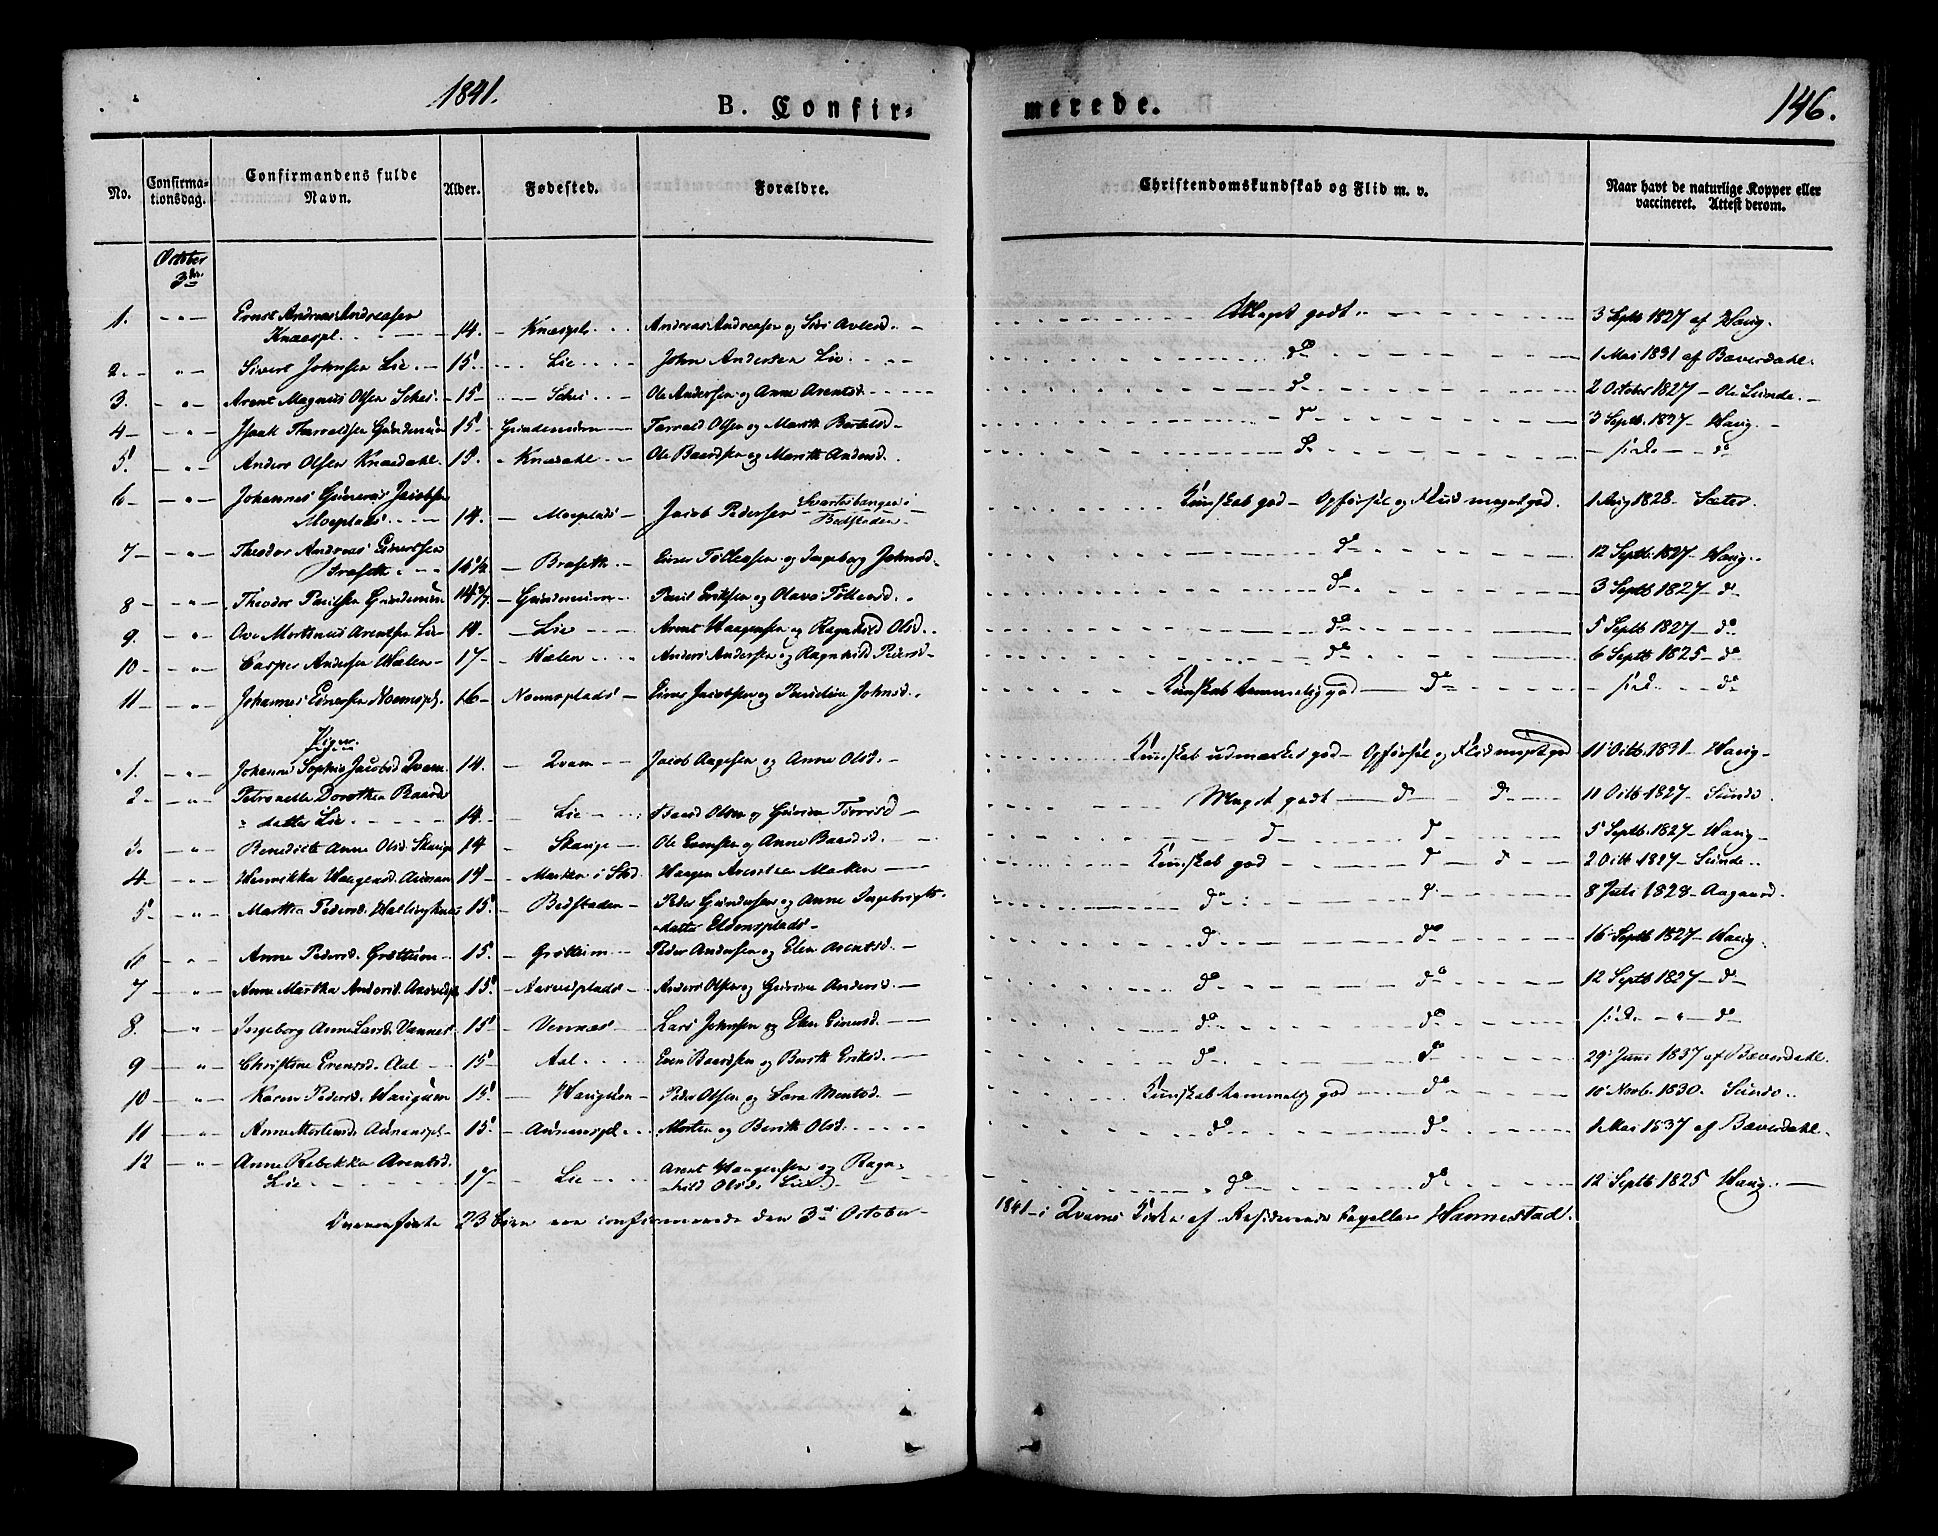 1841.
B. Confir-
merede.
146.
No.
Confirma-
tionsdag.
Confirmandens fulde
Navn.
Alder.
Fødested.
Forældre.
Christendomskundskab og Flid m. v.
Naar havt de naturlige Kopper eller
vaccineret. Attest derom.
October
3die
1. - " - Ernst Andreas Andreasen
Knæspl. 14. - Knæspl. Andreas Andreasen og Siri Avlesd. Meget godt 3 Septb 1827 af Haug.
2. - " - Sivert Johnsen Lie. 15. - Lie John Andersen Lie. do 1 Mai 1831 af Bæverdahl.
3. - " - Arent Magnus Olsen Schei. 15 - Schei Ole Andersen og Anne Arentsd. do 2 October 1827 - Ole Sunde.
4 - " - Isaak Tharaldsen Grindemiin 15. Grindemiirn Tarrald Olsen og Marith Bertelsd - do 3 Septb. 1827 - Haug.
5. - " - Anders Olsen Knædahl. 15. - Knædahl Ole Baardsen og Marith Andersd. do sides - do
6 - " - Johannes Gunerus Jacobsen
Moeplads 14. - Moeplads - Jacob Pedersen Svartesbanger i
Bedstaden Kunskab god - Opførsel og Fliid meget god. 1 Aug 1828. Sæter.
7 - " - Theodor Andreas Einertsen
Braseth. 15 1/2 - Braseth. - Einer Tollefsen og Ingeborg Johnsd. do 12 Septb. 1827 - Haug.
8 - " - Theodor Paulsen Grindemiin 14 3/4 - Grindemiirn Paul Eriksen og Olava Tollefsd. do 3 Septb 1827 - do
9. - " - Ove Martinus Arentsen Lie 14. - Lie Arent Haagensen og Ragnhild Olsd. do 5 Septb 1827 - do
10 - " - Casper Andersen Hælen - 17 - Hælen Anders Andersen og Ragnhild Pedersd - do 6 Septb 1825 - do
11 - " - Johannes Einersen Noemspl. 16 - Noemsplads - Einer Jacobsen og Pauline Johnsd. Kunskab temmelig god - do - do
Piger.
1. - " - Johanne Sophie Jacobsd Qvam. 14. - Qvam Jacob Aagesen og Anne Olsd. - Kunskab udmærket god - Opførsel og Fliid meget god 11 Octb. 1831 - Haug -
2 - " - Petronelle Dorothea Baards-
datter Lie 14. - Lie Baard Olsen og Guruine Torrisd - Meget godt - do do 11 Octb 1827 - Sunde.
3. - " - Benedicte Anne Olsd. Skarge 14 - Skarge - Ole Evensen og Anne Baardsd. do do 5 Septb. 1827 - Haug -
4 - " - Henrikka Haagensd. Aunan 14 - Marken i Stod Haagen Arentsen Marken - Kunskab god do do 2 Octb 1827 - Sunde.
5 - " - Martha Pedersd. Hallingknes 15. - Bedstaden - Peder Gundersen og Anne Ingebrigts-
datter Eldensplads - do do 8 Juli 1828 - Aagaard.
6 - " - Anne Pedersd. Grøttum - 15. - Grøttum - Peder Andersen og Elen Arentsd. - do do 16 Septb 1827 - Haug.
7 - " - Anne Martha Andersd. 15. - Anders Olsen og Guruine Andersd. do do 12 Septb 1827 - do
8. - " - Ingeborg Anne Larsd. Vannes. 15. - Vennæs Lars Johnsen og Elen Einersd. do do sides - " - do
9 - " - Christine Evensd. Aal 15 - Aal. Even Baardsen og Berith Eriksd. do do 29 Juni 1837 af Bæverdahl.
10 - " - Karen Pedersd. Haugum 15. Haugum - Peder Olsen og Sara Mentsd. Kunskab temmelig god do 10 Novb. 1830. Sunde.
11 - " - Anne Mortensd. Aunanspl. 15. - Aunanspl. Morten og Berith Olsd. do do 1 Mai 1837 af Bæverdahl.
12 - " - Anne Rebekka Arentsd.
Lie 17 - Lie Arent Haagensen og Ragn-
hild Olsd. Lie do do 12 Septb 1825 Haug.
23 Børn ere confirmerede den 3die October 1841 - i Qvams Kirke af Residerende Capellan Hannestad.